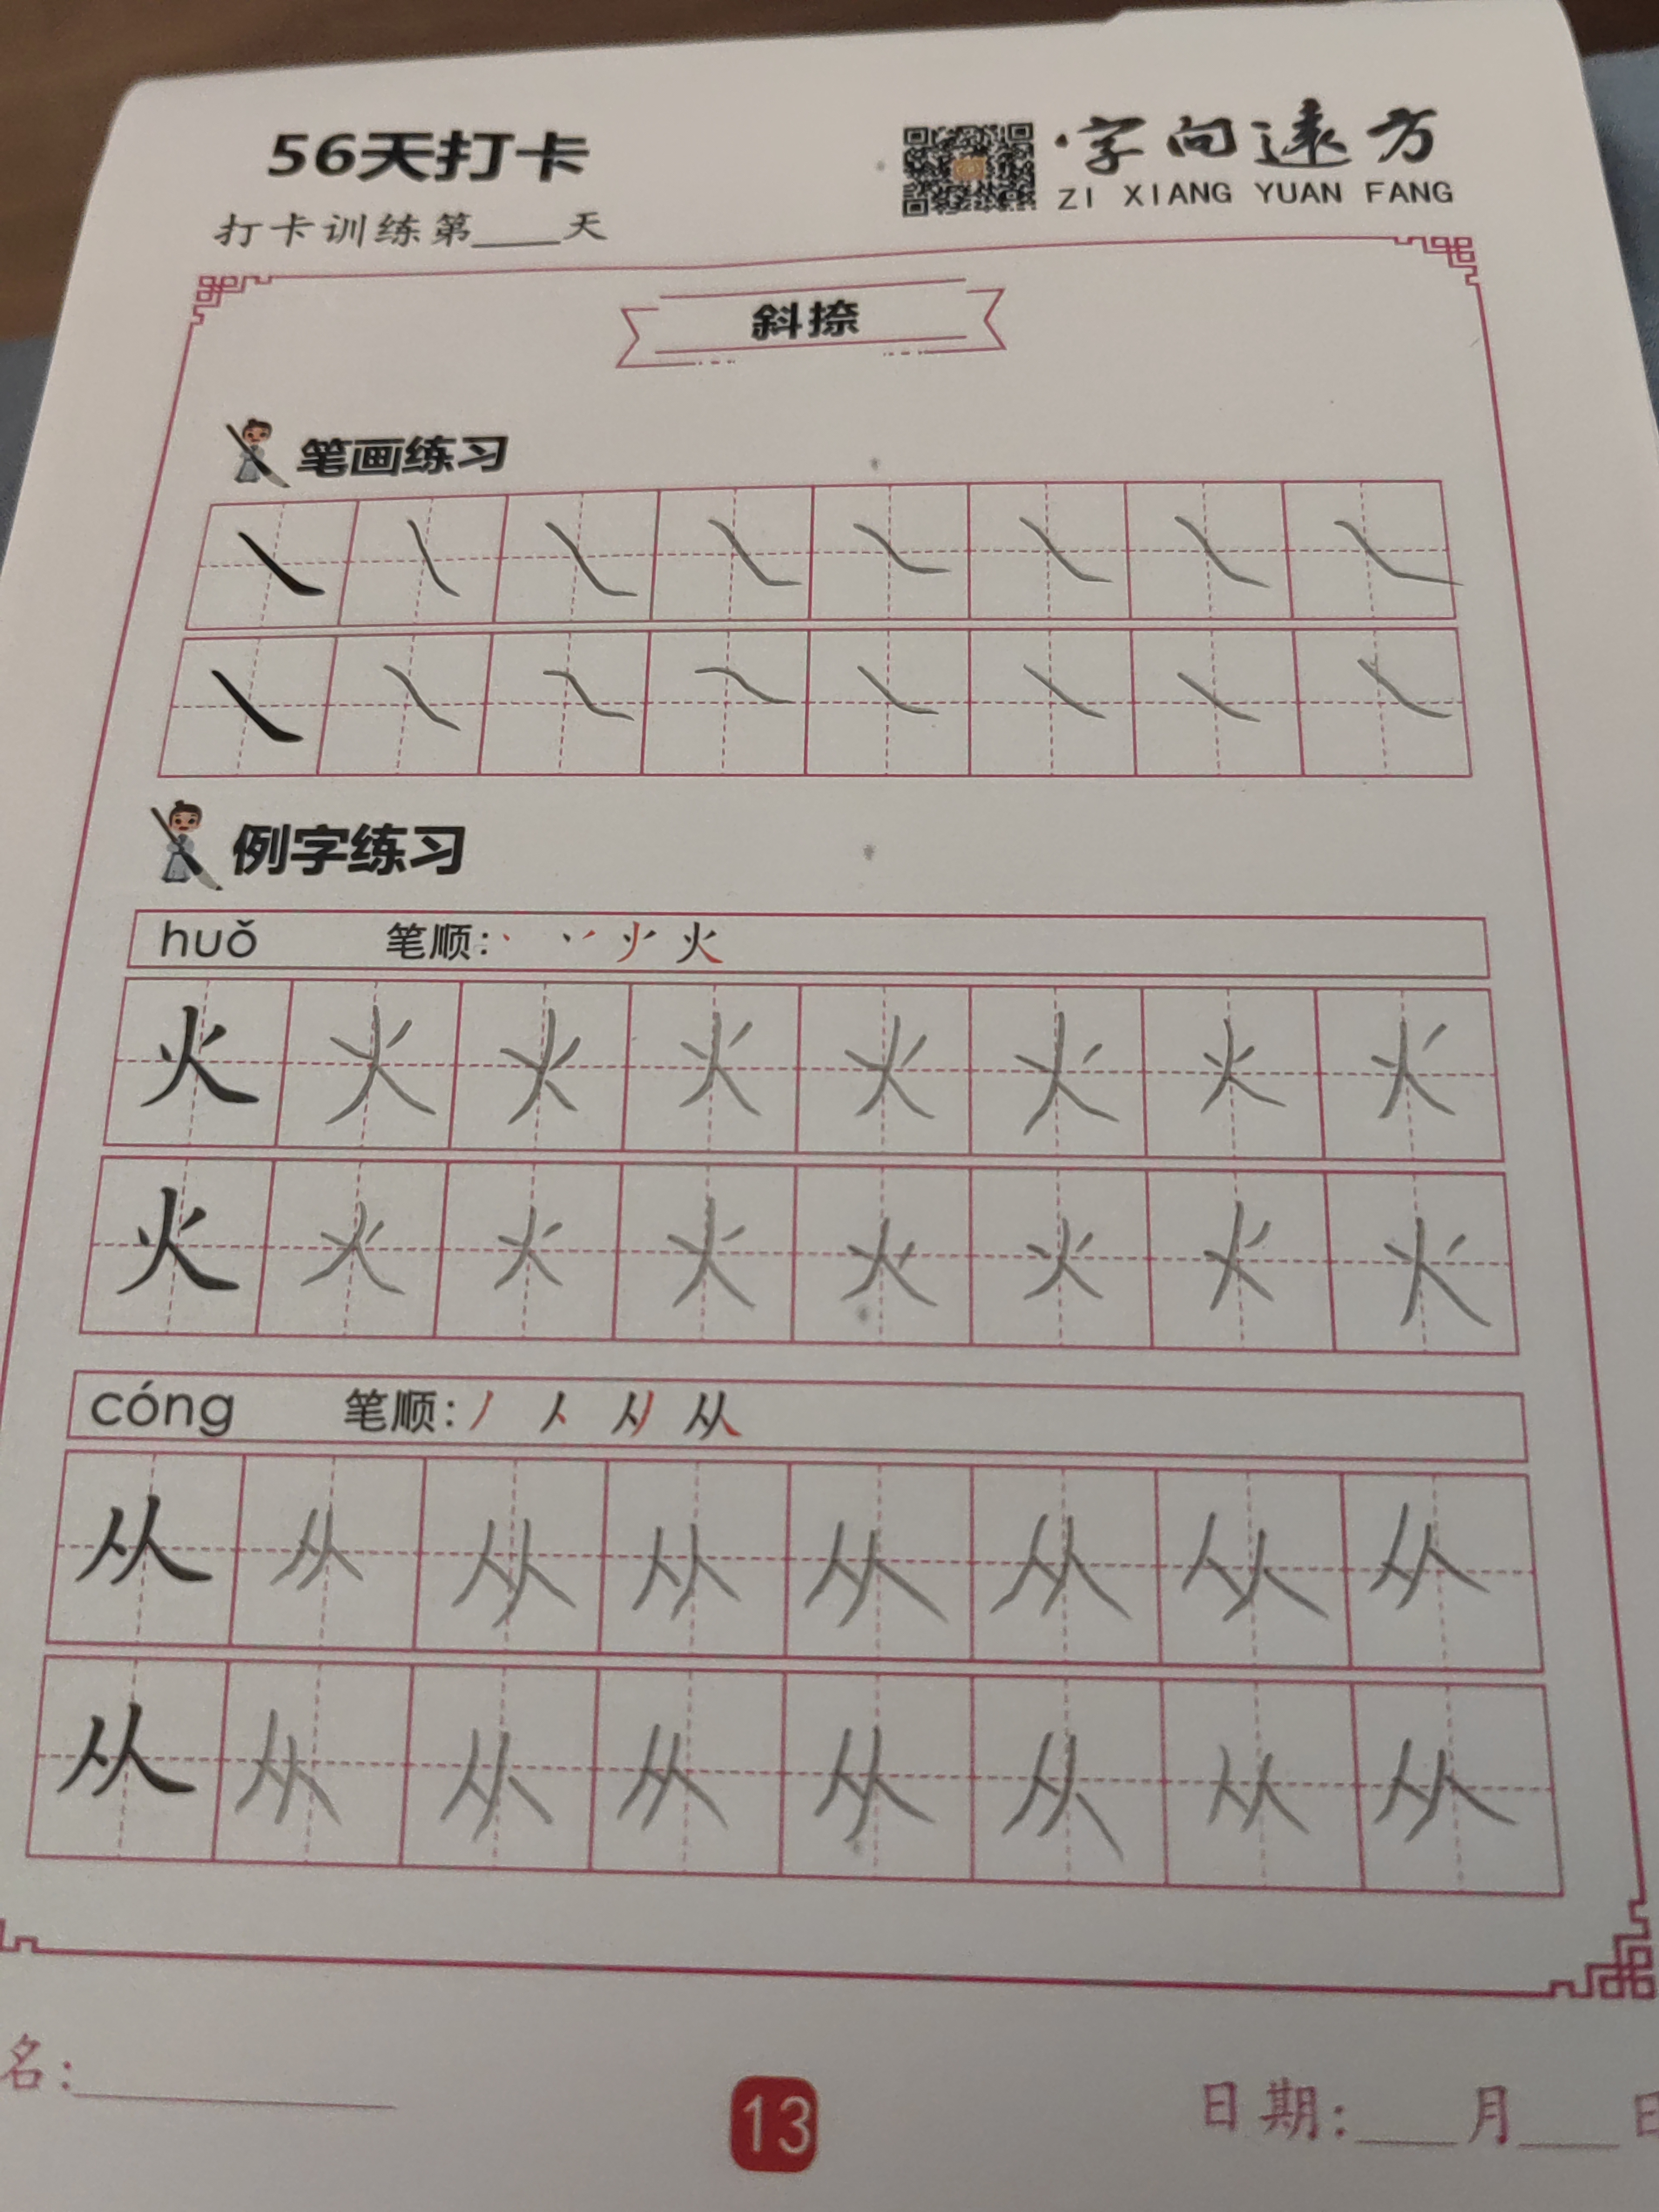 56天打卡
字向远方
ZI XIANG YUAN FANG
打卡训练第____天
斜捺
笔画练习
㇏ ㇏ ㇏ ㇏ ㇏ ㇏ ㇏ ㇏
㇏ ㇏ ㇏ ㇏ ㇏ ㇏ ㇏ ㇏
例字练习
huǒ 笔顺: 火
火 火 火 火 火 火 火 火
火 火 火 火 火 火 火 火
cóng 笔顺: 丿 人 从
从 从 从 从 从 从 从 从
从 从 从 从 从 从 从 从
名:________
13
日期:___月___日